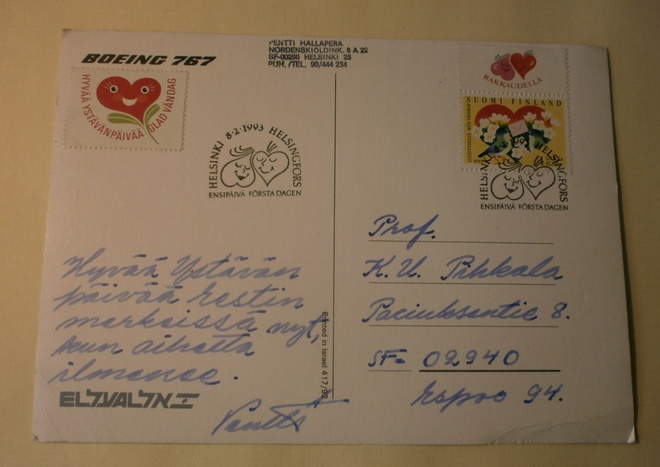 PENTTI HALLAPERA
NORDENSKIÖLDINK. 8 A 22
SF-00250 HELSINKI 25
PUH./TEL. 90/444 234
BOEING 767
HYVÄÄ YSTÄVÄNPÄIVÄÄ
GLAD VÄNDAG
HELSINKI 8-2-1993 HELSINGFORS
ENSIPÄIVÄ FÖRSTA DAGEN
RAKKAUDELLA
SUOMI FINLAND
HELSINKI HELSINGFORS
ENSIPÄIVÄ FÖRSTA DAGEN
Hyvää Ystävän
päivää
merkeissä nyt,
kun aihetta
ilmenee.
Pentti
Printed in Israel 417/92
EL AL אל על
Prof.
K. U. Pihkala
Paciuksentie 8.
SF- 02940
Espoo 94.